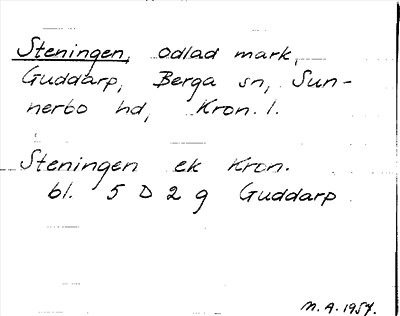 Steningen, odlad mark,
Guddarp, Berga sn, Sun-
nerbo hd, Kron. l.
Steningen ek Kron.
bl. 5 D 2 g Guddarp
M.A. 1957.